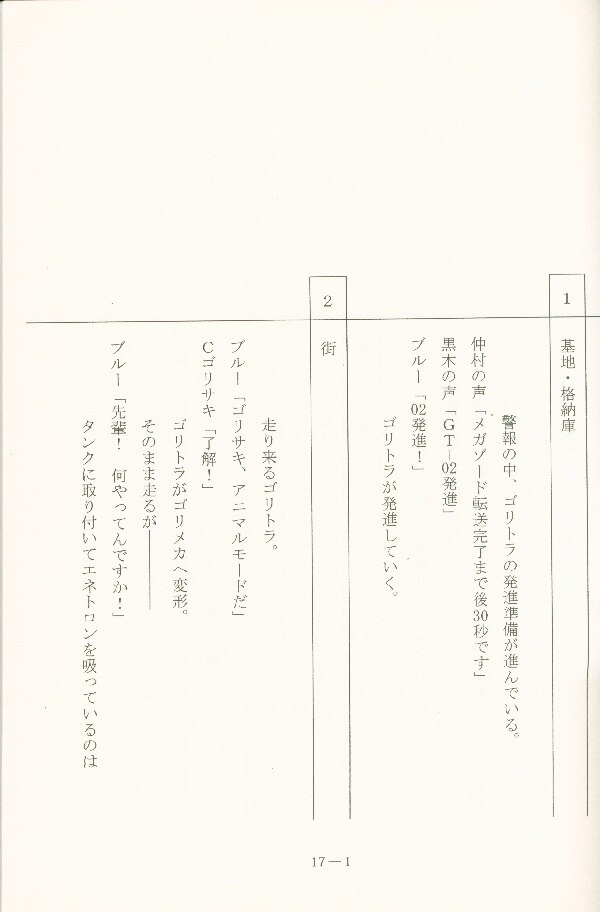 1
基地・格納庫
警報の中、ゴリトラの発進準備が進んでいる。
仲村の声「メガゾード転送完了まで後30秒です」
黒木の声「GT－02発進」
ブルー「02発進！」
ゴリトラが発進していく。
2
街
走り来るゴリトラ。
ブルー「ゴリサキ、アニマルモードだ」
Cゴリサキ「了解！」
ゴリトラがゴリメカへ変形。
そのまま走るが――――
ブルー「先輩！　何やってんですか！」
タンクに取り付いてエネトロンを吸っているのは
17－1